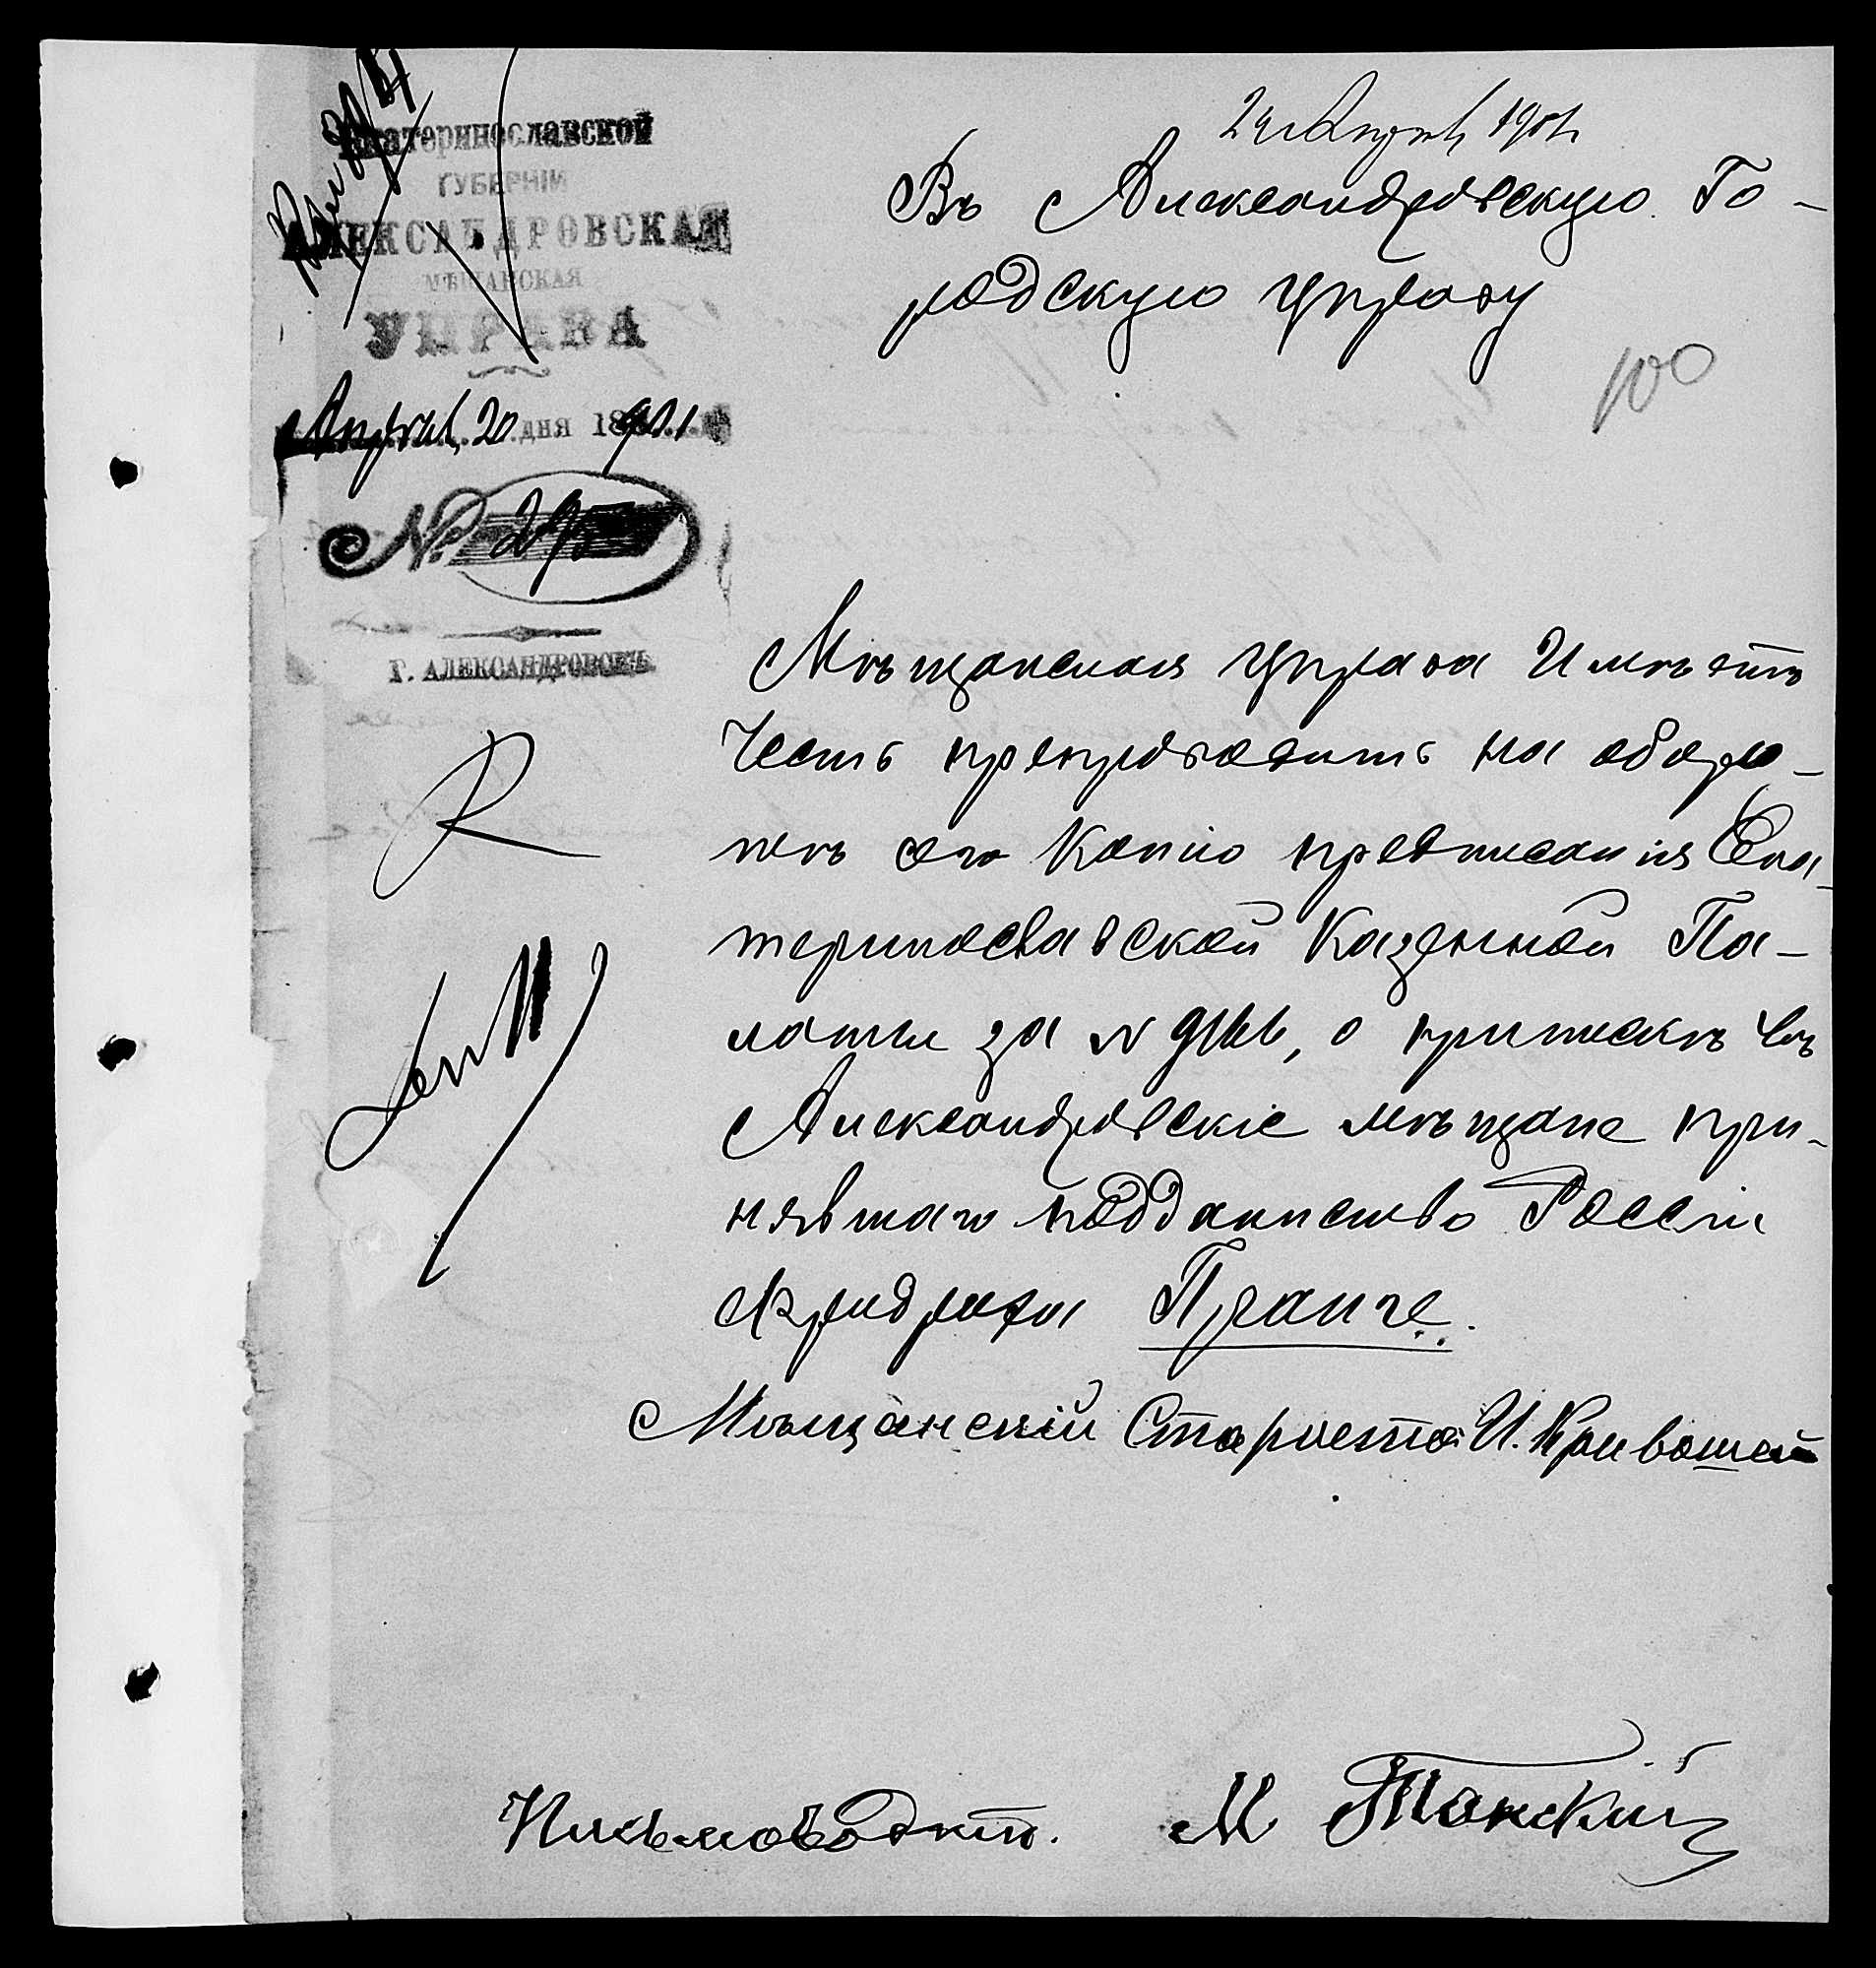 Екатеринославской
ГУБЕРНІИ
АЛЕКСАНДРОВСКАЯ
МѢЩАНСКАЯ
УПРАВА
Апрѣля 20 дня 1901
№ 295
Г. АЛЕКСАНДРОВСКЪ.
24 Апрѣля 1901 г.
Въ Александровскую Го-
родскую Управу
100
Мѣщанская Управа Имѣетъ
Честь препроводить на оборо-
тѣ сего Копію предписанія Ека-
теринославской Казенной Па-
латы за №, о припискѣ въ
Александровскіе мѣщане при-
нявшаго подданство Россіи
Фридриха Пранге.
Мѣщанскій Староста И. Кривошей
Письмоводит. М Танскій